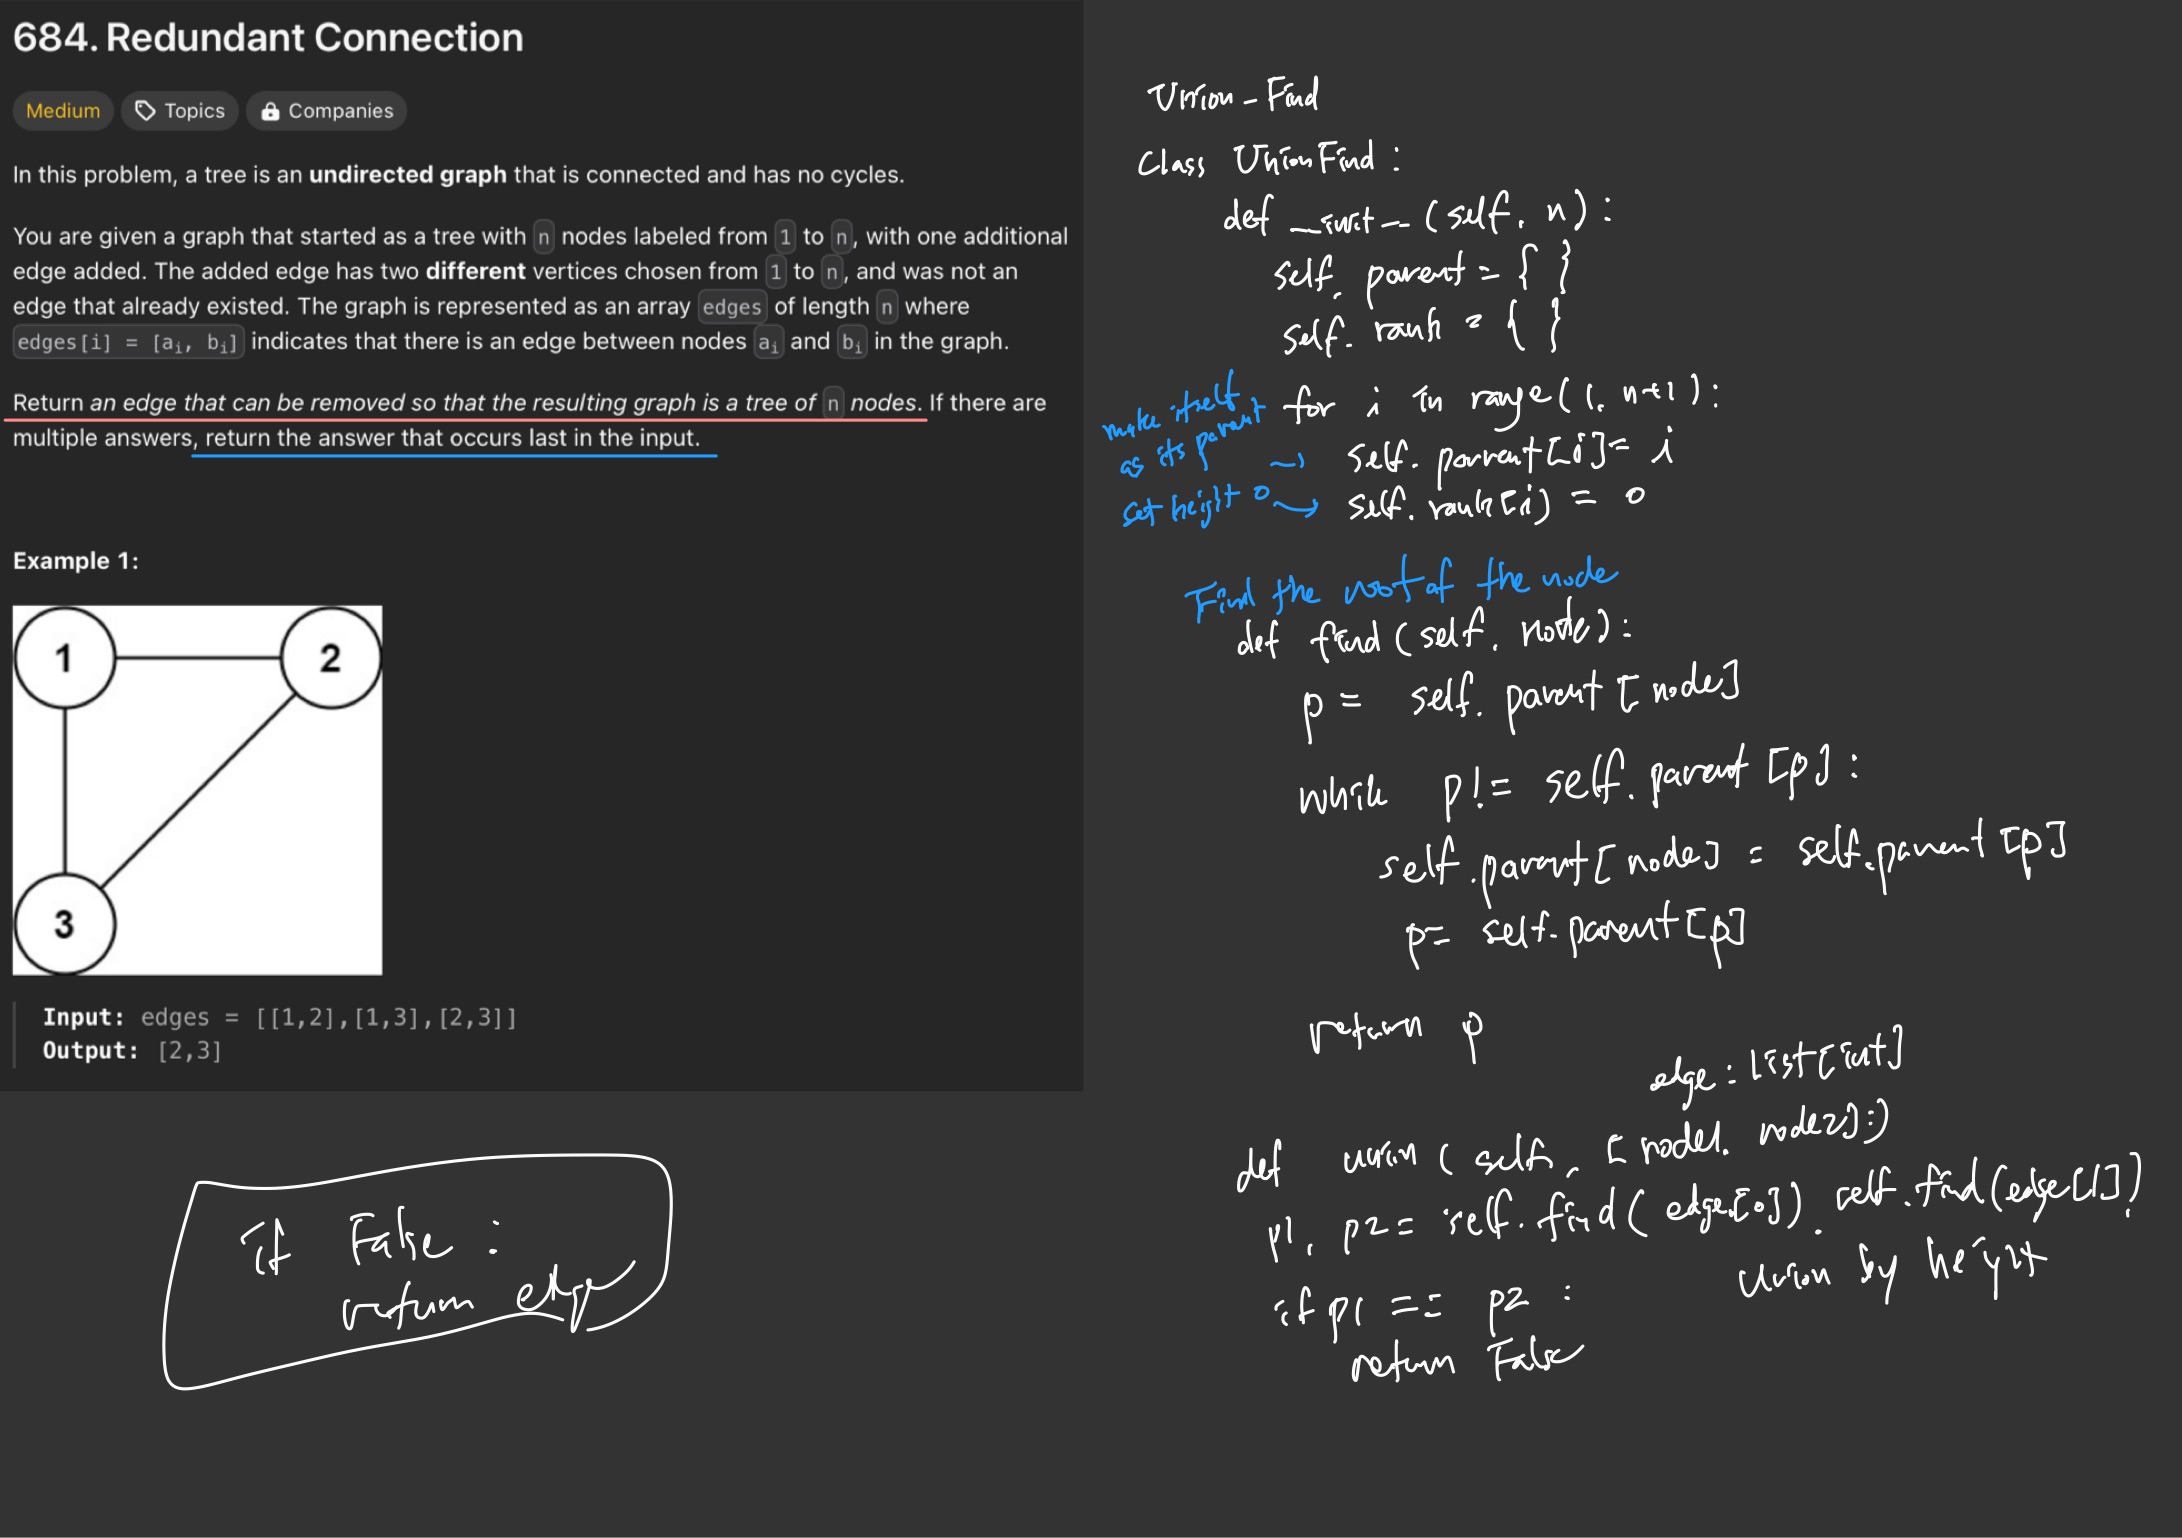 684. Redundant Connection
Medium Topics Companies
In this problem, a tree is an undirected graph that is connected and has no cycles.
You are given a graph that started as a tree with n nodes labeled from 1 to n, with one additional
edge added. The added edge has two different vertices chosen from 1 to n, and was not an
edge that already existed. The graph is represented as an array edges of length n where
edges[i] = [ai, bi] indicates that there is an edge between nodes ai and bi in the graph.
Return an edge that can be removed so that the resulting graph is a tree of n nodes. If there are
multiple answers, return the answer that occurs last in the input.
Example 1:
1
2
3
Input: edges = [[1,2],[1,3],[2,3]]
Output: [2,3]
if False :
return edge
Union - Find
Class UnionFind :
def __init__ (self, n) :
self. parent = { }
self. rank = { }
make itself
as its parent
for i in range(1, n+1) :
→ self. parent[i] = i
set height 0 → self. rank[i] = 0
Find the root of the node
def find (self, node) :
p = self. parent [node]
while p != self. parent [p] :
self.parent[node] = self.parent [p]
p= self.parent[p]
return p
edge : List[int]
def union ( self, [node1, node2]:)
p1, p2 = self.find( edge[0]), self.find(edge[1])
union by height
if p1 == p2 :
return False